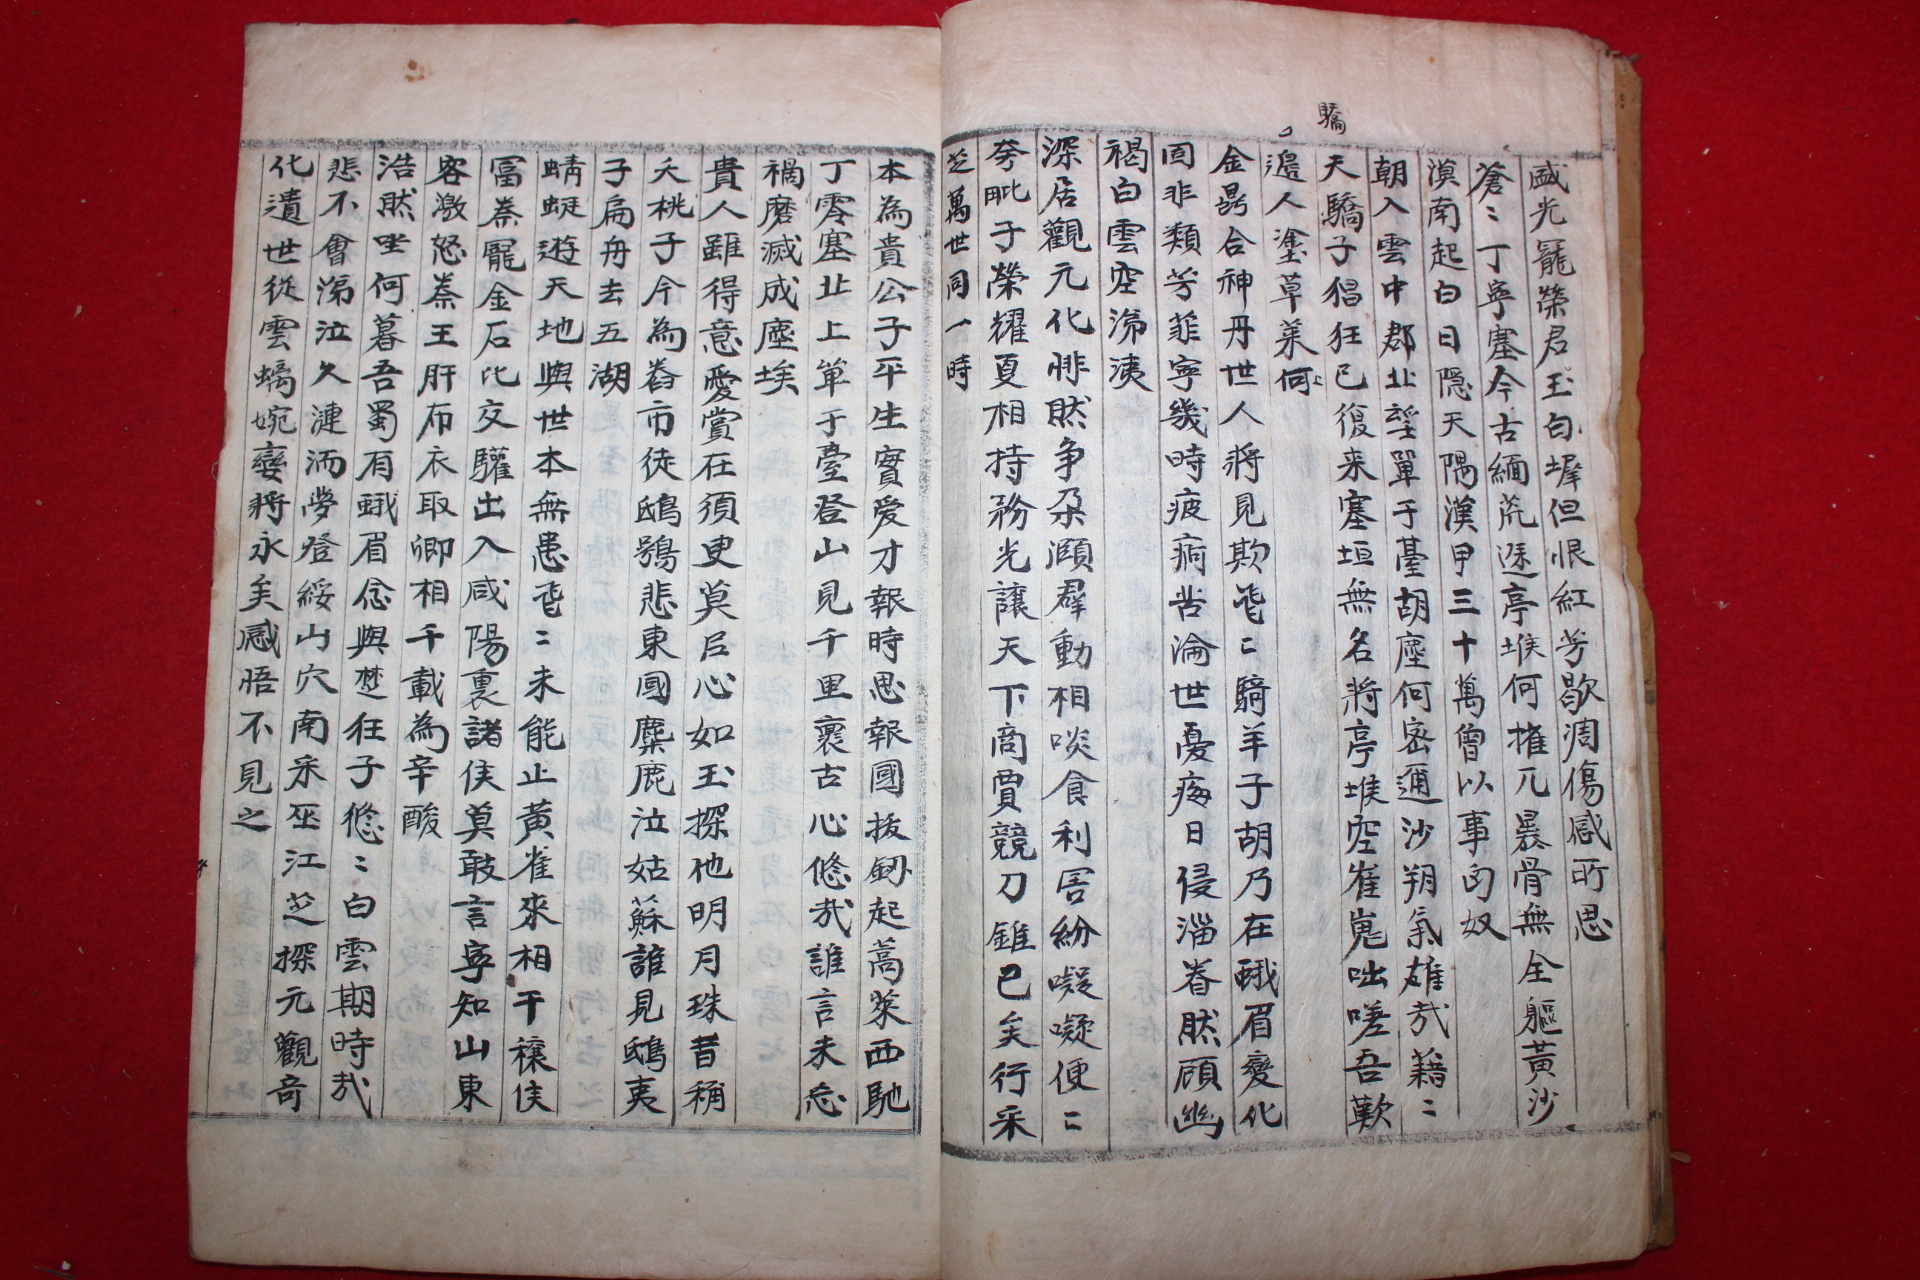 驕
盛光寵榮君玉白墀但恨紅芳歇凋傷感所思
蒼〻丁寧塞今古緬荒途亭堠何摧兀暴骨無全軀黃沙
漠南起白日隱天隅漢甲三十萬曾以事匈奴
朝入雲中郡北望單于臺胡塵何密邇沙朔氣雄哉藉〻
天驕子猖狂已復来塞垣無名將亭堠空崔嵬咄嗟吾歎
邊人塗草萊何上
金鼎合神丹世人將見欺飛〻騎羊子胡乃在蛾眉變化
固非類芳菲寧幾時疲痾苦淪世憂痗日侵淄眷然顧幽
褐白雲空涕洟
深居觀元化悱然争朶頤群動相啖食利害紛㘈㘈便〻
夸毗子榮耀更相持務光讓天下商賈競刀錐已矣行采
芝萬世同一時
本為貴公子平生實愛才報時思報國拔劒起蒿萊西馳
丁零塞北上單于臺登山見千里褱古心悠哉誰言未忘
禍磨滅成塵埃
貴人雖得意愛賞在須臾莫㠯心如玉探他明月珠昔稱
夭桃子今為舂市徒鴟鴞悲東國麋鹿泣姑蘇誰見鴟夷
子扁舟去五湖
蜻蜓遊天地與世本無患飛〻未能止黃雀來相干穰侯
富秦寵金石比交驩出入咸陽裏諸侯莫敢言寧知山東
客激怒秦王肝布衣取卿相千載為辛酸
浩然坐何暮吾蜀有蛾眉念與楚狂子悠〻白雲期時哉
悲不會涕泣久漣洏夢登綏山穴南采巫江芝探元觀奇
化遺世從雲螭婉孌將永矣感悟不見之